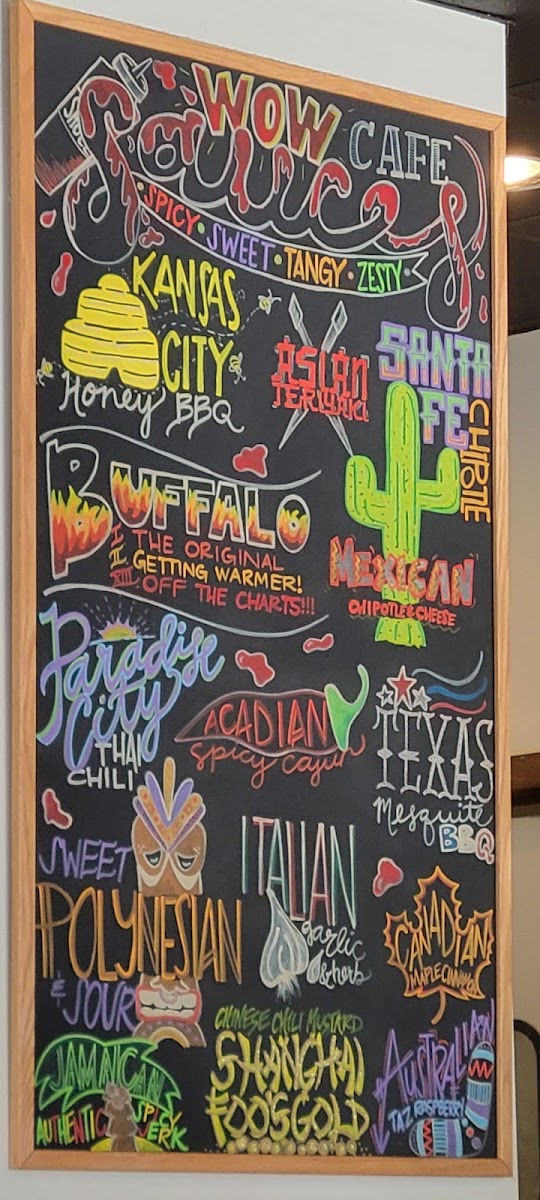 WOW CAFE
Sauces
SPICY • SWEET • TANGY • ZESTY
KANSAS
CITY
Honey BBQ
ASIAN
TERIYAKI
SANTA
FE
CHIPOTLE
BUFFALO
I THE ORIGINAL
II GETTING WARMER!
III OFF THE CHARTS!!!
MEXICAN
CHIPOTLE & CHEESE
Paradise
City
THAI
CHILI
ACADIAN
Spicy Cajun
TEXAS
Mesquite
BBQ
SWEET
POLYNESIAN
& SOUR
ITALIAN
garlic
& herb
CANADIAN
MAPLE CINNAMON
JAMAICAN
AUTHENTIC SPICY
JERK
CHINESE CHILI MUSTARD
SHANGHAI
FOO'SGOLD
AUSTRALIAN
TAZ RASPBERRY